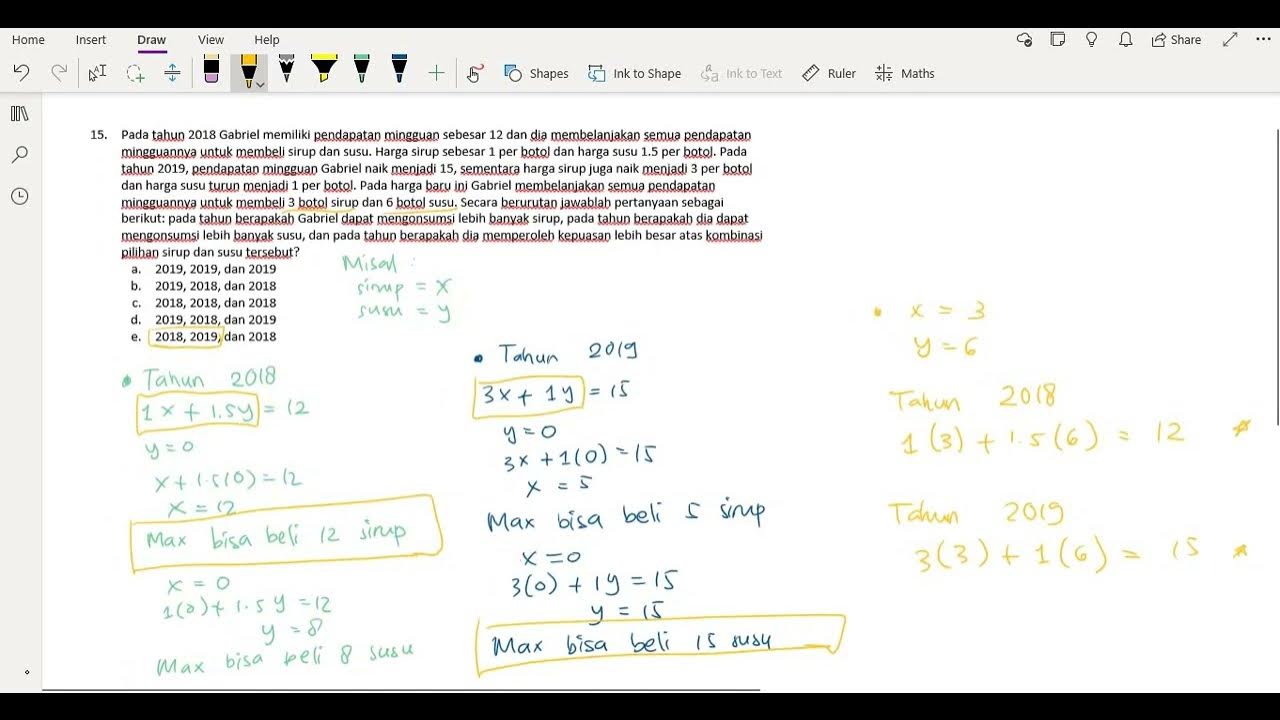 Home Insert Draw View Help
Share
Shapes Ink to Shape Ink to Text Ruler Maths
15. Pada tahun 2018 Gabriel memiliki pendapatan mingguan sebesar 12 dan dia membelanjakan semua pendapatan
mingguannya untuk membeli sirup dan susu. Harga sirup sebesar 1 per botol dan harga susu 1.5 per botol. Pada
tahun 2019, pendapatan mingguan Gabriel naik menjadi 15, sementara harga sirup juga naik menjadi 3 per botol
dan harga susu turun menjadi 1 per botol. Pada harga baru ini Gabriel membelanjakan semua pendapatan
mingguannya untuk membeli 3 botol sirup dan 6 botol susu. Secara berurutan jawablah pertanyaan sebagai
berikut: pada tahun berapakah Gabriel dapat mengonsumsi lebih banyak sirup, pada tahun berapakah dia dapat
mengonsumsi lebih banyak susu, dan pada tahun berapakah dia memperoleh kepuasan lebih besar atas kombinasi
pilihan sirup dan susu tersebut?
a. 2019, 2019, dan 2019
b. 2019, 2018, dan 2018
c. 2018, 2018, dan 2018
d. 2019, 2018, dan 2019
e. 2018, 2019, dan 2018
Misal :
sirup = x
susu = y
• Tahun 2018
1x + 1.5y = 12
y = 0
x + 1.5(0) = 12
x = 12
Max bisa beli 12 sirup
x = 0
1(0) + 1.5 y = 12
y = 8
Max bisa beli 8 susu
• Tahun 2019
3x + 1y = 15
y = 0
3x + 1(0) = 15
x = 5
Max bisa beli 5 sirup
x = 0
3(0) + 1y = 15
y = 15
Max bisa beli 15 susu
• x = 3
y = 6
Tahun 2018
1(3) + 1.5(6) = 12
Tahun 2019
3(3) + 1(6) = 15